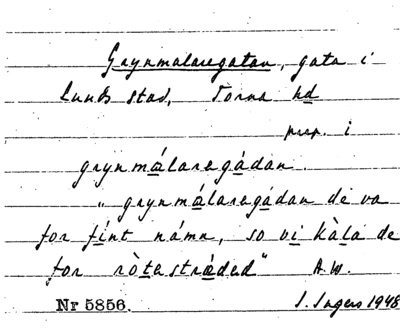 Grynmalaregatan, gata i
Lunds stad, Torna hd
prep. i
grynmálaregádan.
"grynmálaregádan de va
for fínt námn, so vi kàla de
for ròtestrǽded" A.W.
Nr 5856. I. Ingers 1948